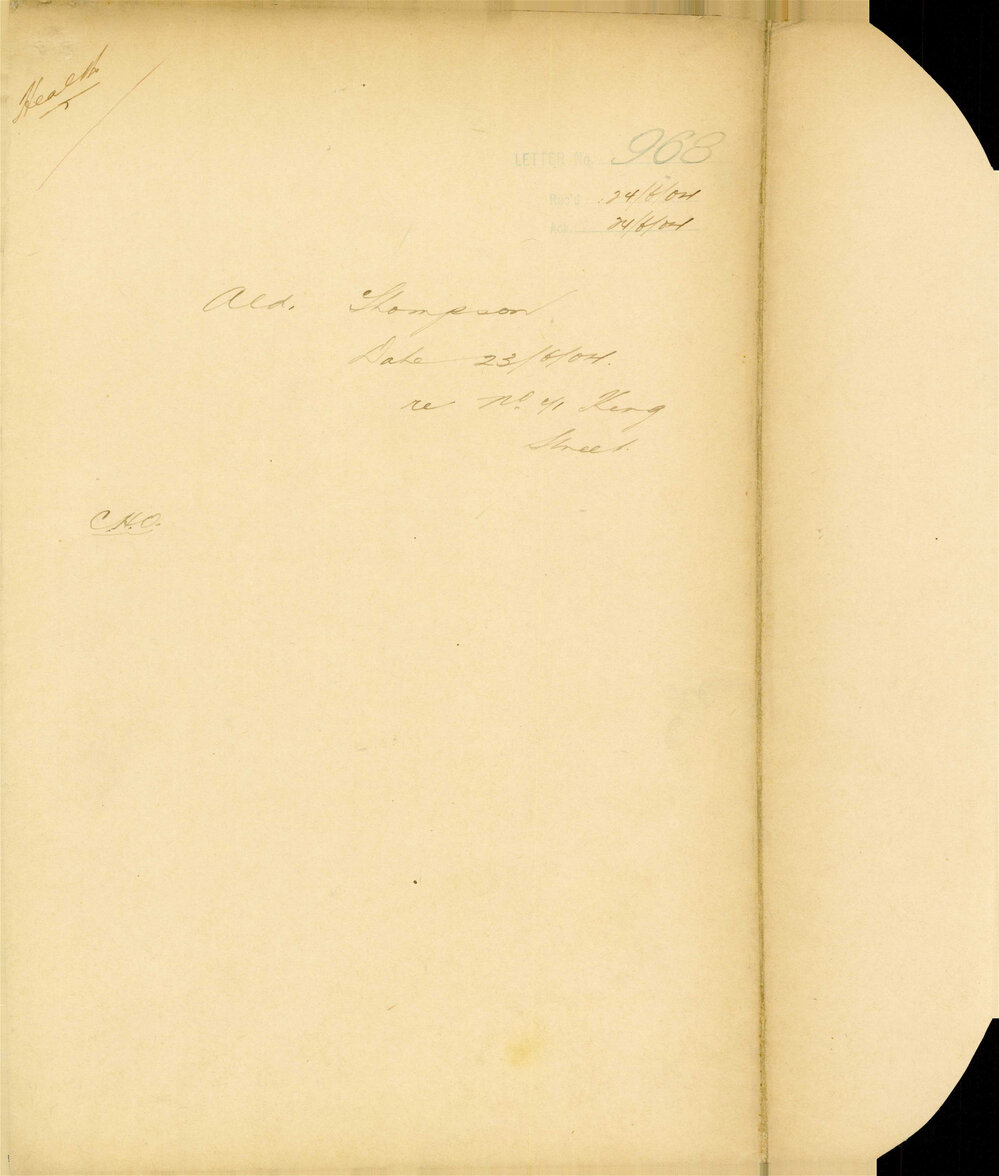 Health
LETTER No. 968
Rec'd 24/6/04
Ack. 24/6/04
Ald. Thompson
Date 23/6/04.
re No. King
Street.
C.H.O.